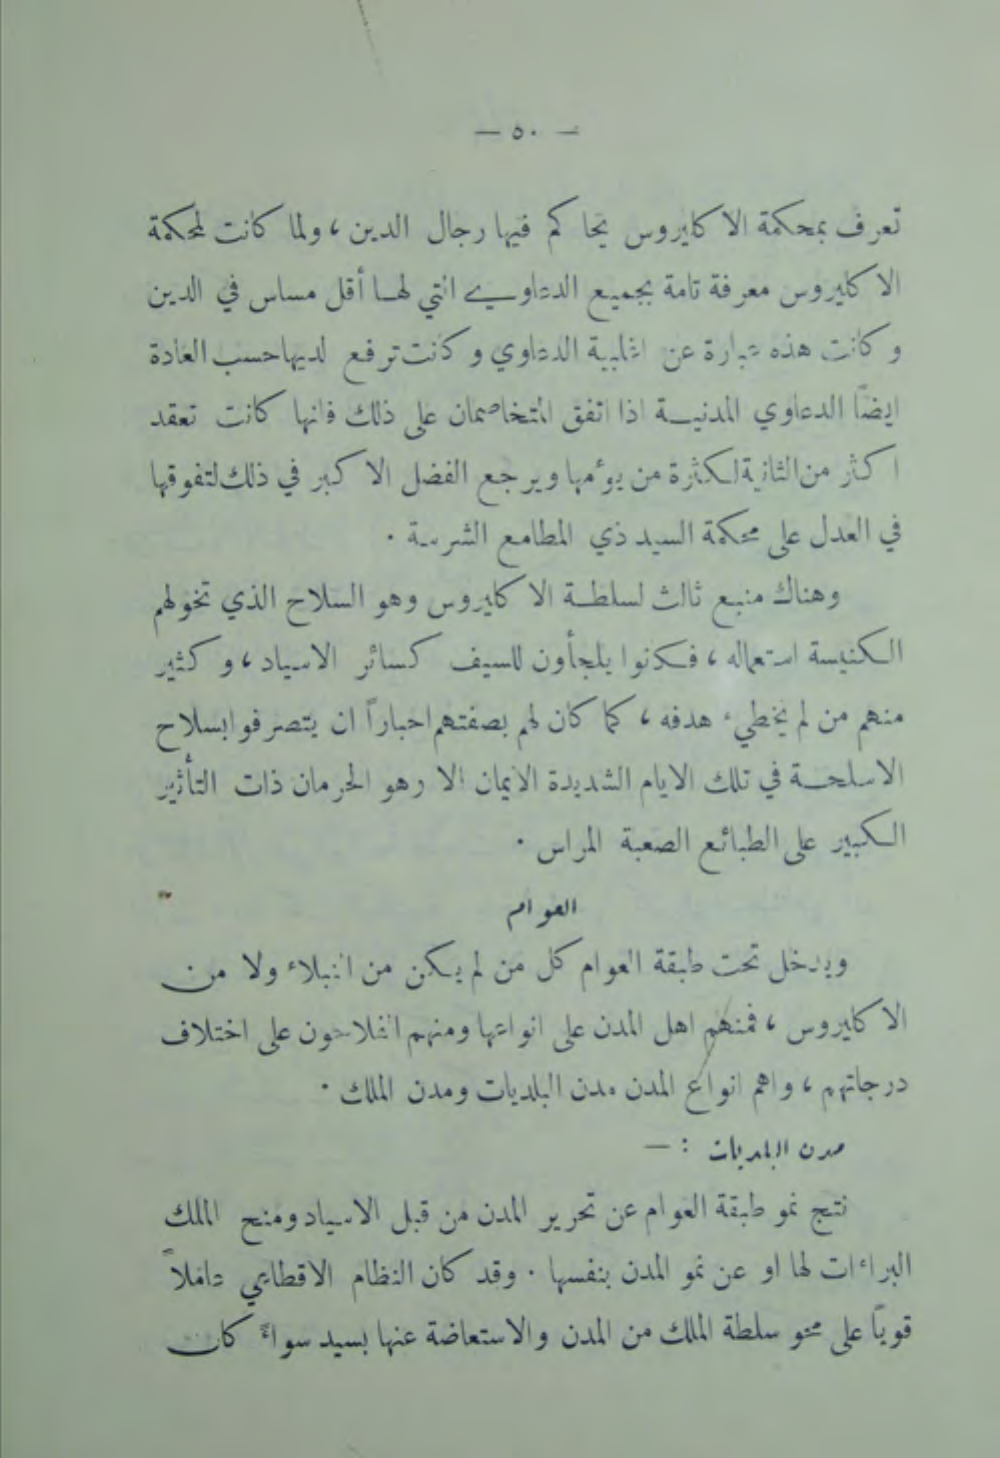 — ٥٠ —
تعرف بمحكمة الاكليروس يحاكم فيها رجال الدين ، ولما كانت لمحكمة
الاكليروس معرفة تامة بجميع الدعاوي التي لهـا أقل مساس في الدين
وكانت هذه عبارة عن اغلبية الدعاوي وكانت ترفع لديها حسب العادة
ايضاً الدعاوي المدنيـة اذا اتفق المتخاصمان على ذلك فانها كانت تعقد
اكثر من الثانية لكثرة من يؤمها ويرجع الفضل الاكبر في ذلك لتفوقها
في العدل على محكمة السيد ذي المطامع الشرهة .
وهناك منبع ثالث لسلطـة الاكليروس وهو السلاح الذي تخولهم
الكنيسة استعماله ، فـكانوا يلجأون للسيف كسائر الاسياد ، وكثير
منهم من لم يخطيء هدفه ، كما كان لهم بصفتهم احباراً ان يتصرفوا بسلاح
الاسلحـة في تلك الايام الشديدة الايمان الا وهو الحرمان ذات التأثير
الـكبير على الطبائع الصعبة المراس .
العوام
ويدخل تحت طبقة العوام كل من لم يكن من النبلاء ولا من
الاكليروس ، فمنهم اهل المدن على انواعها ومنهم الفلاحون على اختلاف
درجاتهم ، واهم انواع المدن مدن البلديات ومدن الملك .
مدن البلديات : —
نتج نمو طبقة العوام عن تحرير المدن من قبل الاسياد ومنح الملك
البراءات لها او عن نمو المدن بنفسها . وقد كان النظام الاقطاعي عاملاً
قوياً على محو سلطة الملك من المدن والاستعاضة عنها بسيد سواءً كان